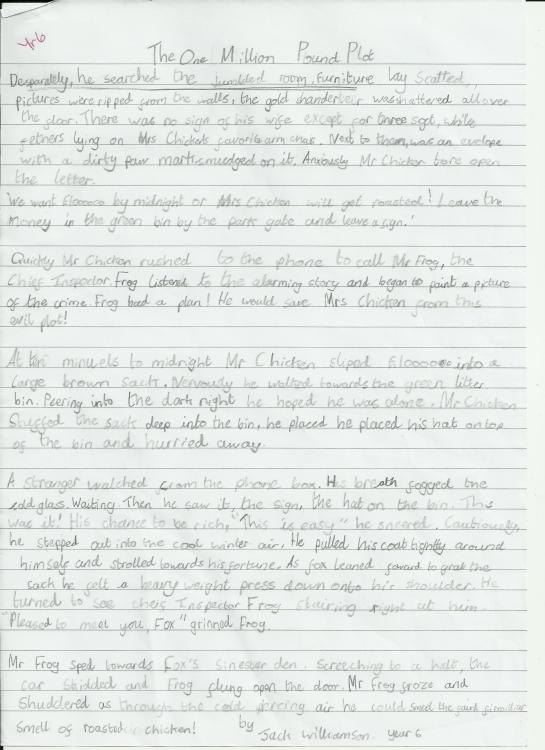 Yr6
The One Million Pound Plot
Desparately, he searched the jumbled room. Furniture lay Scatted,
pictures were ripped from the walls, the gold shanderleir was shattered all over
the floor. There was no sign of his wife except for three soft, while
fethers lying on Mrs Chicken's favorite arm chair. Next to them, was an evelope
with a dirty paw mark smudged on it. Anxiously Mr Chicken tore open
the letter.
'We want £1000000 by midnight or Mrs Chicken will get roasted! Leave the
money in the green bin by the park gate and leave a sign.'
Quickly Mr Chicken rushed to the phone to call Mr Frog, the
Chief Inspector. Frog listend to the alarming story and began to paint a picture
of the crime. Frog had a plan! He would save Mrs Chicken from this
evil plot!
At ten minuets to midnight Mr Chicken sliped £1000000 into a
large brown sack. Nervously he walked towards the green litter
bin. Peering into the dark night he hoped he was alone. Mr Chicken
Stuffed the sack deep into the bin, he placed he placed his hat on top
of the bin and hurried away.
A stranger watched from the phone box. His breath fogged the
cold glass. Waiting. Then he saw it, the sign, the hat on the bin. This
was it! His chance to be rich, "This is easy" he sneered. Cautiously,
he stepped out into the cool winter air. He pulled his coat tightly around
himself and strolled towards his fortune. As fox leaned forward to grab the
sack he felt a heavy weight press down onto his shoulder. He
turned to see cheif Inspector Frog stairing right at him.
"Pleased to meet you, Fox" grinned Frog.
Mr Frog sped towards Fox's sinester den. Screeching to a halt, the
car skidded and Frog flung open the door. Mr Frog froze and
shuddered as through the cold piercing air he could smell the faint firmiliar
smell of roasted chicken! by Jack Williamson. year 6